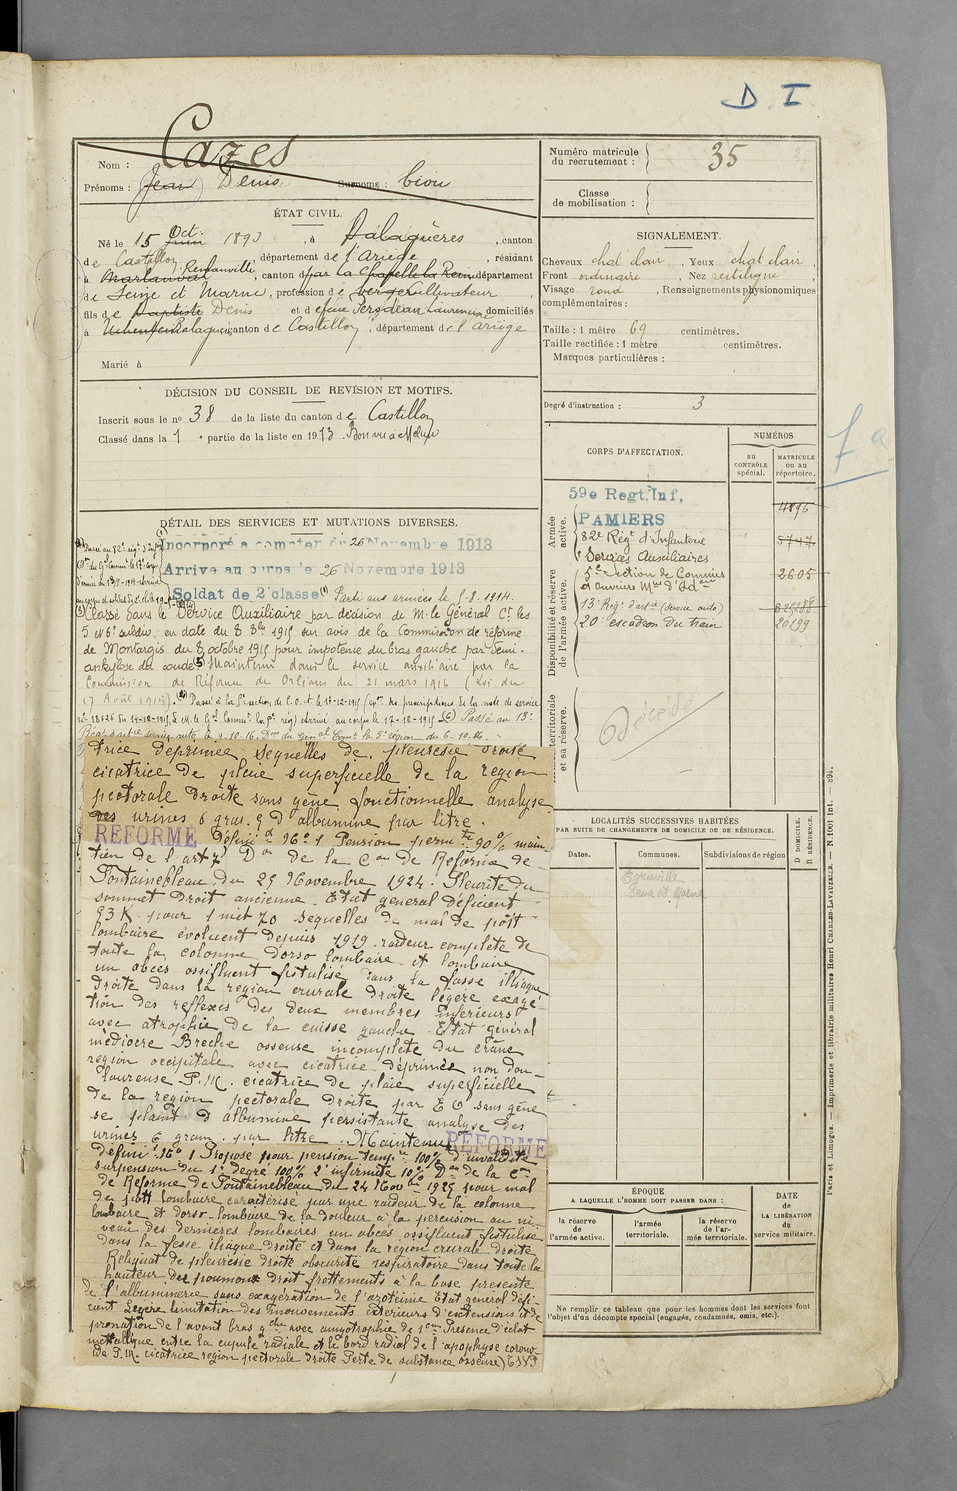 D. I.
Cazes
Nom :
Prénoms : Jean Denis Surnoms : Ciou
Numéro matricule du recrutement : 35
Classe de mobilisation :
ÉTAT CIVIL.
Né le 15 Oct. Juin 1893, à Balaguères, canton
de Castillon, département de l'Ariège, résidant
à Rentanville, canton de par la Chapelle la Reine département
de Seine et Marne, profession de berger cultivateur
fils de Baptiste Denis et de feue Pergdeau Laurencine domiciliés
à Balaguères canton de Castillon, département de l'Ariège
Marié à
SIGNALEMENT.
Cheveux chat clair, Yeux chat clair,
Front ordinaire, Nez rectiligne
Visage rond, Renseignements physionomiques
complémentaires :
Taille : 1 mètre 69 centimètres.
Taille rectifiée : 1 mètre centimètres.
Marques particulières :
Degré d'instruction : 3
DÉCISION DU CONSEIL DE REVISION ET MOTIFS.
Inscrit sous le nº 38 de la liste du canton de Castillon
Classé dans la 1e partie de la liste en 1913 Bon vu à Melun
CORPS D'AFFECTATION.
NUMÉROS
au CONTRÔLE spécial.
MATRICULE ou au répertoire.
Armée active.
59e Regt. Inf, 4896
PAMIERS
82e Régt d'Infanterie 5747
Services Auxiliaires
Disponibilité et réserve de l'armée active.
5e Section de Commis 2605
et ouvriers Mres d'Adon
13e Régt d'artie (service auto)
20e escadron du train 20199
territoriale et sa réserve.
Décédé
DÉTAIL DES SERVICES ET MUTATIONS DIVERSES.
Incorporé à compter du 26 Novembre 1913
Arrivé au corps le 26 Novembre 1913
Soldat de 2e classe (1) Parti aux armées le 5.8.1914.
Classé dans le Service Auxiliaire par décision de M. le Général Ct les
5 et 6e subdiv. en date du 8 8bre 1915 sur avis de la Commission de réforme
de Montargis du 8 octobre 1915 pour impotence du bras gauche par semi-
ankylose du coude. Maintenu dans le service auxiliaire par la
Commission de Réforme de Orléans du 21 mars 1916 (Loi du
17 Août 1915). Passé à la 5e section de C.O.A. le 17-12-1915
arrivé au corps le 17-12-1915 Passé au 13e
le 9.10.16. du 6-10.16.
trice déprimée sequelles de pleuresie droite
cicatrice de plaie superficielle de la region
pectorale droite sans gêne fonctionnelle analyse
des urines 6 gras. 9 D albumine par litre.
REFORMÉ Défini d 96º 1 Pension perm te 90% main
tien de l'art 7 Don de la Com de Reforme de
Fontainebleau du 29 Novembre 1924. Pleurite du
sommet droit ancienne. Etat general déficient
53 K. pour 1 met 70 sequelles de mal de pott
lombaire évoluent depuis 1919 raideur complète de
toute la colonne dorso lombaire et lombaire
un abcès ossifluent fistulisé dans la fosse illiaque
droite dans la region crurale droite légère exagé-
tion des reflexes des deux membres inférieurs
avec atrophie de la cuisse gauche. Etat général
médiocre Breche osseuse incomplète du crâne
region occipitale avec cicatrice déprimée non dou-
loureuse P.M. cicatrice de plaie superficielle
de la region pectorale droite par E O sans gêne
se plaint d albumine persistante analyse des
urines 6 gram. par litre. Maintenu REFORMÉ
défini d 96º 1 Proposé pour pension temp re 100% d'invalidité
surpension du 1er degré 100% 2e infirmité 10% Don de la Con
de Reforme de Fontainebleau du 24 Novbre 1925 pour mal
de pott lombaire caractérisé par une raideur de la colonne
lombaire et dorso-lombaire de la douleur à la percusion au ni-
veau des dernieres lombaires un abcès ossifluent fistulisé
dans la fesse iliaque droite et dans la region crurale droite
Reliquat de pleuresie droite obscurité respiratoire dans toute la
hauteur des poumons droit frottements à la base presente
de l'albuminerie sans exagération de l'azotémie Etat general défi-
cient Légère limitation des mouvements exterieurs d'extensions et de
pronation de l'avant bras gche avec amyotrophie de 1 cm Presence d'éclat
mettalique entre la cupule radiale et le bord radial de l'apophyse corono-
ide P.M. cicatrice region pectorale droite Perte de substance osseuse) TSVP
1 a
LOCALITÉS SUCCESSIVES HABITÉES
PAR SUITE DE CHANGEMENTS DE DOMICILE OU DE RÉSIDENCE.
Dates.
Communes.
Subdivisions de région
D DOMICILE. R RÉSIDENCE.
Seine et Marne
ÉPOQUE
A LAQUELLE L'HOMME DOIT PASSER DANS :
la réserve de l'armée active.
l'armée territoriale.
la réserve de l'armée territoriale.
DATE de LA LIBÉRATION du service militaire.
Ne remplir ce tableau que pour les hommes dont les services font
l'objet d'un décompte spécial (engagés, condamnés, omis, etc.).
Paris et Limoges. — Imprimerie et librairie militaires Henri CHARLES-LAVAUZELLE. — N. 1001 int. — 894.